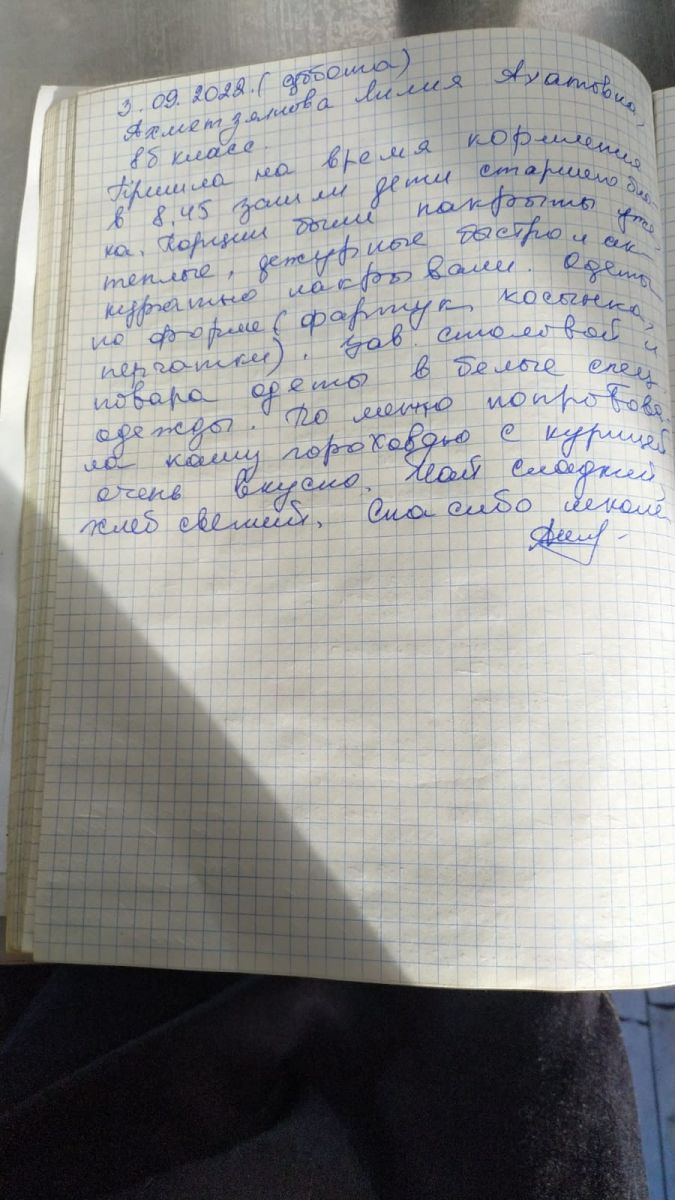 3.09.2022.(суббота)
Ахметзянова Лилия Ахатовна,
8б класс.
Пришла на время кормления
в 8.45 зашли дети старшего бло-
ка. Порции были накрыты уже
теплые, дежурные быстро и ак-
куратно накрывали. Одеты
по форме (фартук, косынка,
перчатки). Зав. столовой и
повара одеты в белые спец.
одежды. По меню попробова-
ла кашу гороховую с курицей
очень вкусно. Чай сладкий,
хлеб свежий. Спасибо школе